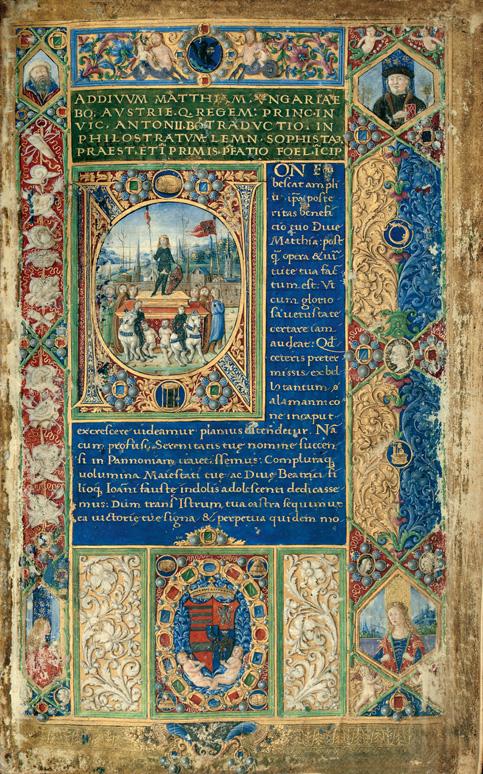 AD DIVVM MATTHIAM. VNGARIAE
BO. AVSTRIE. Q. REGEM: PRINC. IN
VIC. ANTONII. BO TRADVCTIO. IN
PHILOSTRATVM LEMN. SOPHISTA.
PRAEST. ETI PRIMIS. PFATIO FOEL. ICIP
ON Eru
bescat ampli
poste
ritas benefi
cio quo Diue
Matthia: post
q̃ opera & uir
tute tua fac
tum. est: Vt
cum glorio
sa uetustate
certare iam
audeat: Qd
ceteris preter
missis ex bel
lo tantum
alamannico
ne in caput
excrescere uideamur planius ostendetur. Nã
cum profusi, Serenitatis tue nomine succen
si in Pannoniam: Compluraq
uolumina Maiestati tue ac Diue Beatrici. fi
lioq, Ioani fauste indolis adolescenti dedicasse
mus: Dum trans Istrum, tua castra sequimur
ea uictorie tue signa & perpetua quidem mo